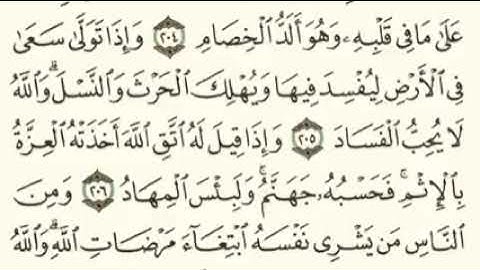 عَلَىٰ مَا فِى قَلْبِهِۦ وَهُوَ أَلَدُّ ٱلْخِصَامِ ٢٠٤ وَإِذَا تَوَلَّىٰ سَعَىٰ
فِى ٱلْأَرْضِ لِيُفْسِدَ فِيهَا وَيُهْلِكَ ٱلْحَرْثَ وَٱلنَّسْلَ ۗ وَٱللَّهُ
لَا يُحِبُّ ٱلْفَسَادَ ٢٠٥ وَإِذَا قِيلَ لَهُ ٱتَّقِ ٱللَّهَ أَخَذَتْهُ ٱلْعِزَّةُ
بِٱلْإِثْمِ ۚ فَحَسْبُهُۥ جَهَنَّمُ ۚ وَلَبِئْسَ ٱلْمِهَادُ ٢٠٦ وَمِنَ
ٱلنَّاسِ مَن يَشْرِى نَفْسَهُ ٱبْتِغَآءَ مَرْضَاتِ ٱللَّهِ ۗ وَٱللَّهُ